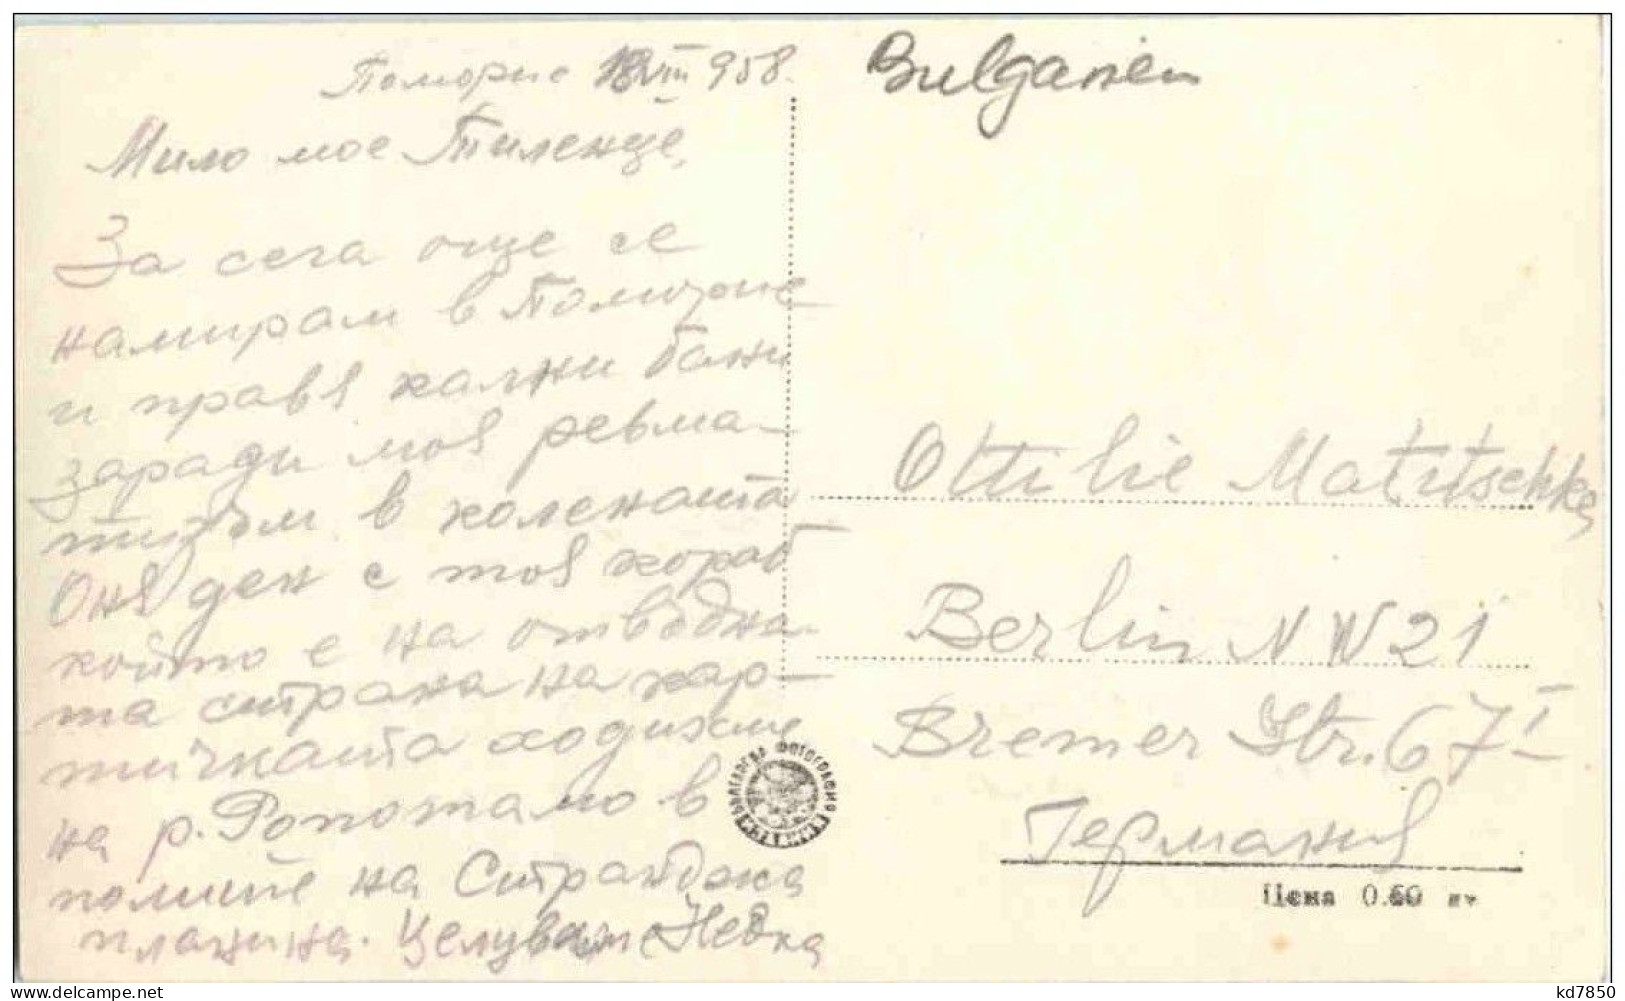 Поморие 18 VIII 958.
Мило мое Тиленце,
За сега още се
намирам в Поморие
и правя кални бани
заради моя ревма-
тизъм в колената
Оня ден с тоя кораб
който е на отвъдна-
та страна на кар-
тичката ходихме
на р. Ропотамо в
полите на Странджа
планина. Целувам Недка
Bulgarien
Ottilie Matitschka
Berlin N W 21
Bremer Str. 67 I
Германия
БЪЛГАРСКА ФОТОГРАФИЯ
Цена 0.60 лв
kd7850